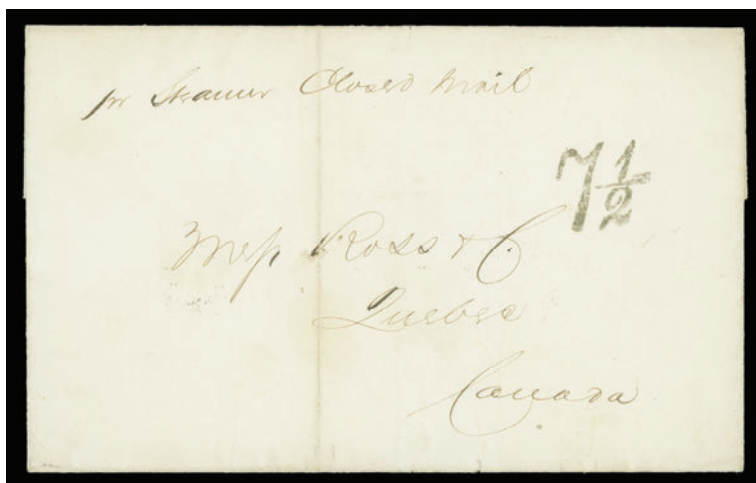 pr Steamer Closed Mail
7½
Messrs Ross & Co
Quebec
Canada